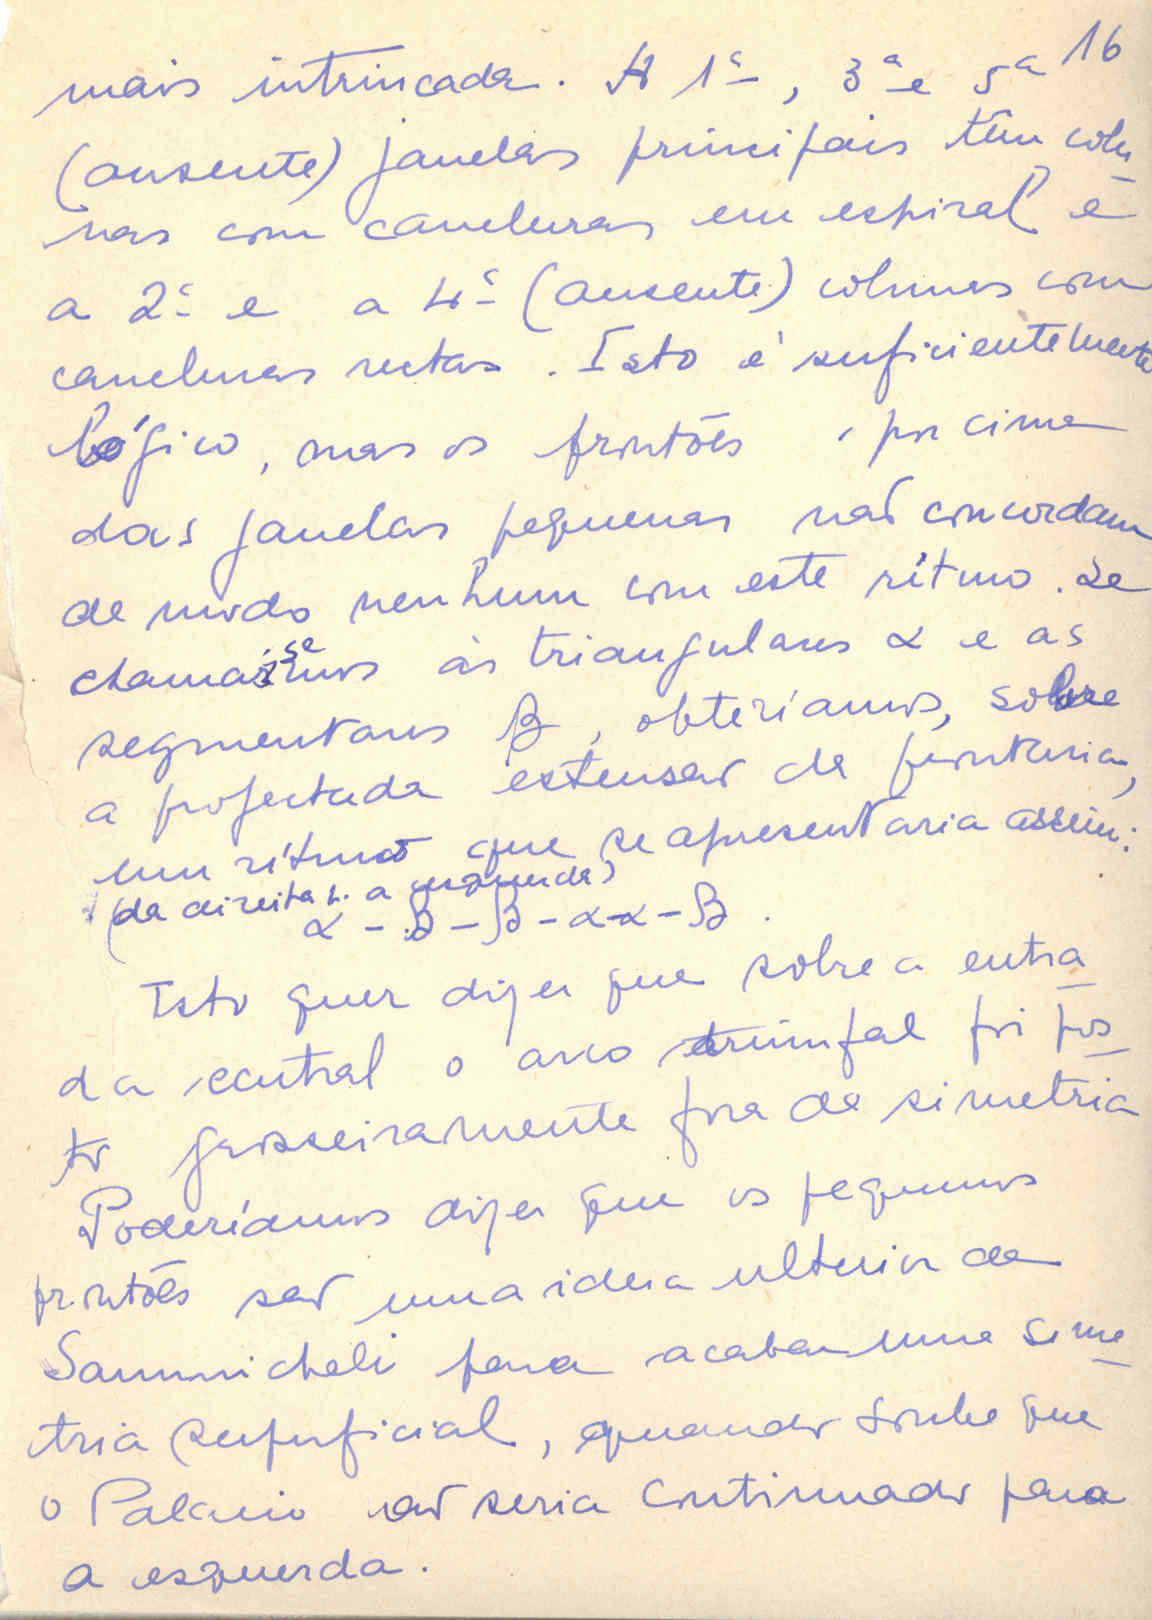 16
mais intrincada. A 1ª, 3ª e 5ª
(ausente) janelas principais têm colu_
nas com caneluras em espiral e
a 2ª e a 4ª (ausente) colunas com
caneluras rectas. Isto é suficientemente
lógico, mas os frontões por cima
das janelas pequenas não concordam
de modo nenhum com este rítmo. Se
chamassemos às triangulares α e as
segmentares β, obteríamos, sobre
a projectada extensão da frontaria,
um rítmo que se apresentaria assim:
(da direita p. a esquerda)
α – β – β – α – α – β.
Isto quer dizer que sobre a entra_
da central o arco triunfal foi pos_
to grosseiramente fora de simetria
Poderíamos dizer que os pequenos
frontões são uma ideia ulterior de
Sanmicheli para acabar uma sime_
tria superficial, quando soube que
o Palacio não seria continuado para
a esquerda.